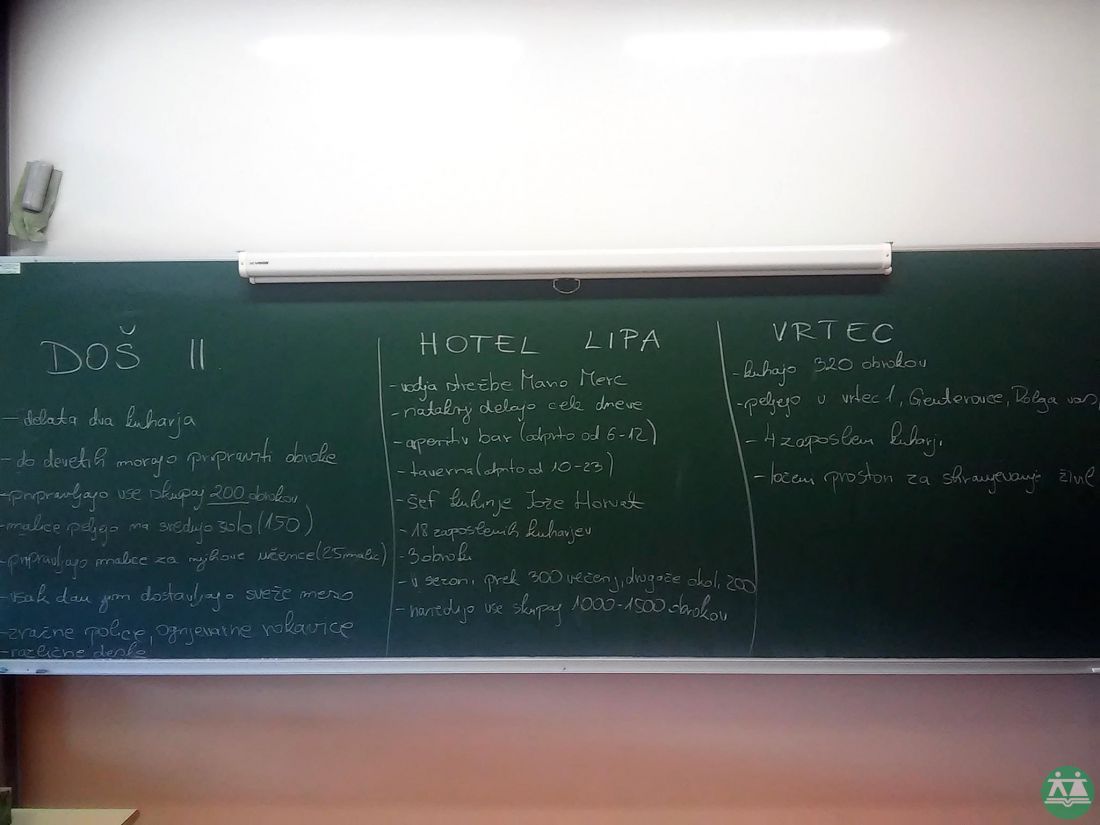 DOŠ II
- delata dva kuharja
- do devetih morajo pripraviti obroke
- pripravljajo vse skupaj 200 obrokov
- malice peljejo na srednjo šolo (150)
- pripravljajo malice za njihove učence (25 malic)
- vsak dan jim dostavljajo sveže meso
- zračne police, ognjevarne rokavice
- različne deske
HOTEL LIPA
- vodja strežbe Mano Merc
- natakarji delajo cel dneve
- aperitiv bar (odprto od 6-12)
- taverna (odprto od 10-23)
- šef kuhinje Jože Horvat
- 18 zaposlenih kuharjev
- 3 obroki
- v sezoni prek 300 večerj, drugače okol. 200
- naredijo vse skupaj 1000-1500 obrokov
VRTEC
- kuhajo 320 obrokov
- peljejo v vrtec 1, Genterovce, Dolga vas,
- 4 zaposleni kuharji
- ločeni prostori za shranjevanje živil